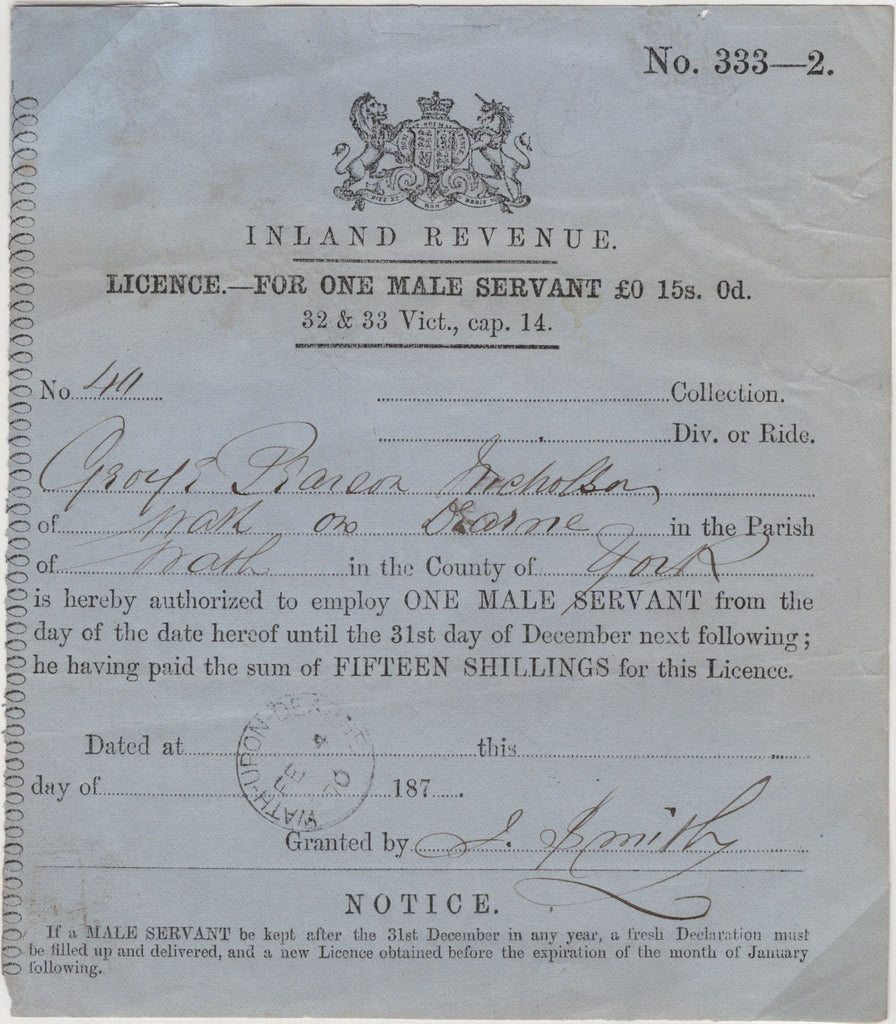 No. 333—2.
DIEU ET MON DROIT
INLAND REVENUE.
LICENCE.—FOR ONE MALE SERVANT £0 15s. 0d.
32 & 33 Vict., cap. 14.
No 40 Collection.
Div. or Ride.
George Pearson Nicholson
of Wath on Dearne in the Parish
of Wath in the County of York
is hereby authorized to employ ONE MALE SERVANT from the
day of the date hereof until the 31st day of December next following;
he having paid the sum of FIFTEEN SHILLINGS for this Licence.
WATH-UPON-DEARNE
FE 4
70
Dated at this
day of 187
Granted by J. Smith
NOTICE.
If a MALE SERVANT be kept after the 31st December in any year, a fresh Declaration must
be filled up and delivered, and a new Licence obtained before the expiration of the month of January
following.